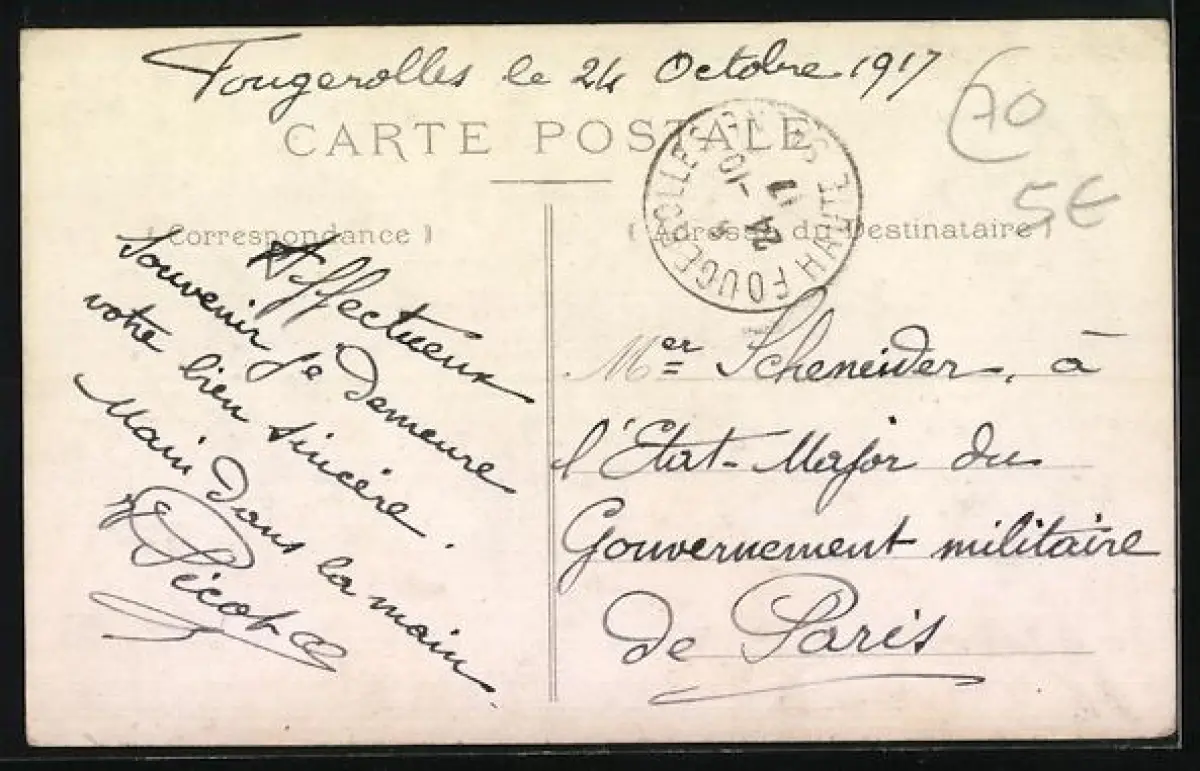 Fougerolles le 24 Octobre 1917
CARTE POSTALE
70
5€
( Correspondance )
( Adresse du Destinataire )
FOUGEROLLES HAUTE
24 -10
17
Affectueux
Souvenir je demeure
votre bien sincère.
Main dans la main
Picot
Mer Scheneider, à
l'Etat-Major du
Gouvernement militaire
de Paris